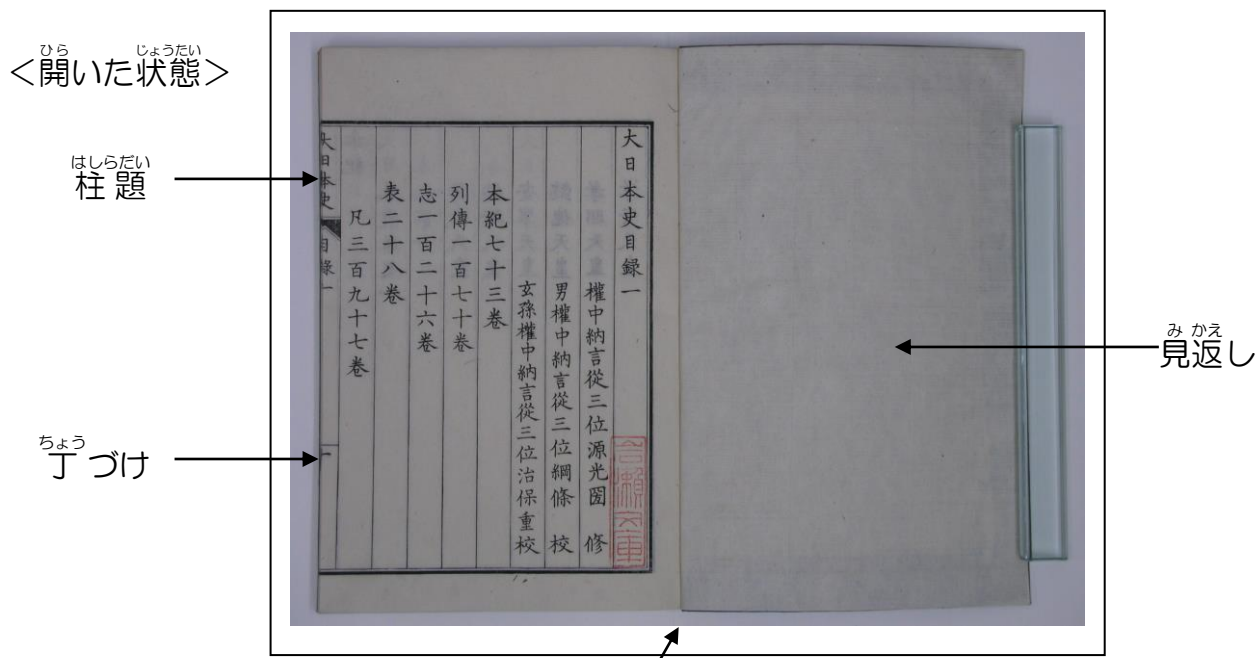 ひら じょうたい
＜開いた状態＞
はしらだい
柱題
ちょう
丁づけ
み かえ
見返し
大日本史目録一
權中納言從三位源光圀 修
男權中納言從三位綱條 校
玄孫權中納言從三位治保重校
本紀七十三卷
列傳一百七十卷
志一百二十六卷
表二十八卷
凡三百九十七卷
大日本史 目録一 一